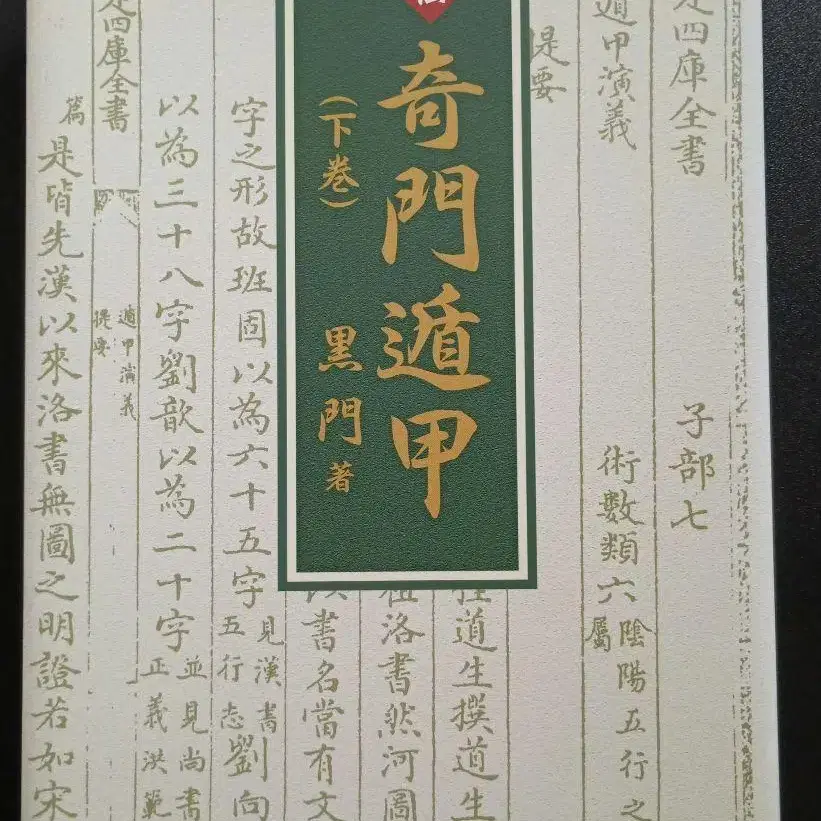 奇門遁甲
(下巻)
黒門 著
四庫全書
子部七
遁甲演義
術數類六
陰陽五行之
屬
提要
道生撰道生
洛書然河圖
書名當有文
字之形故班固以為六十五字
見漢書
五行志
劉向
以為三十八字劉歆以為二十字
並見尚書
正義洪範
四庫全書
遁甲演義
提要
篇
是皆先漢以來洛書無圖之明證若如宋